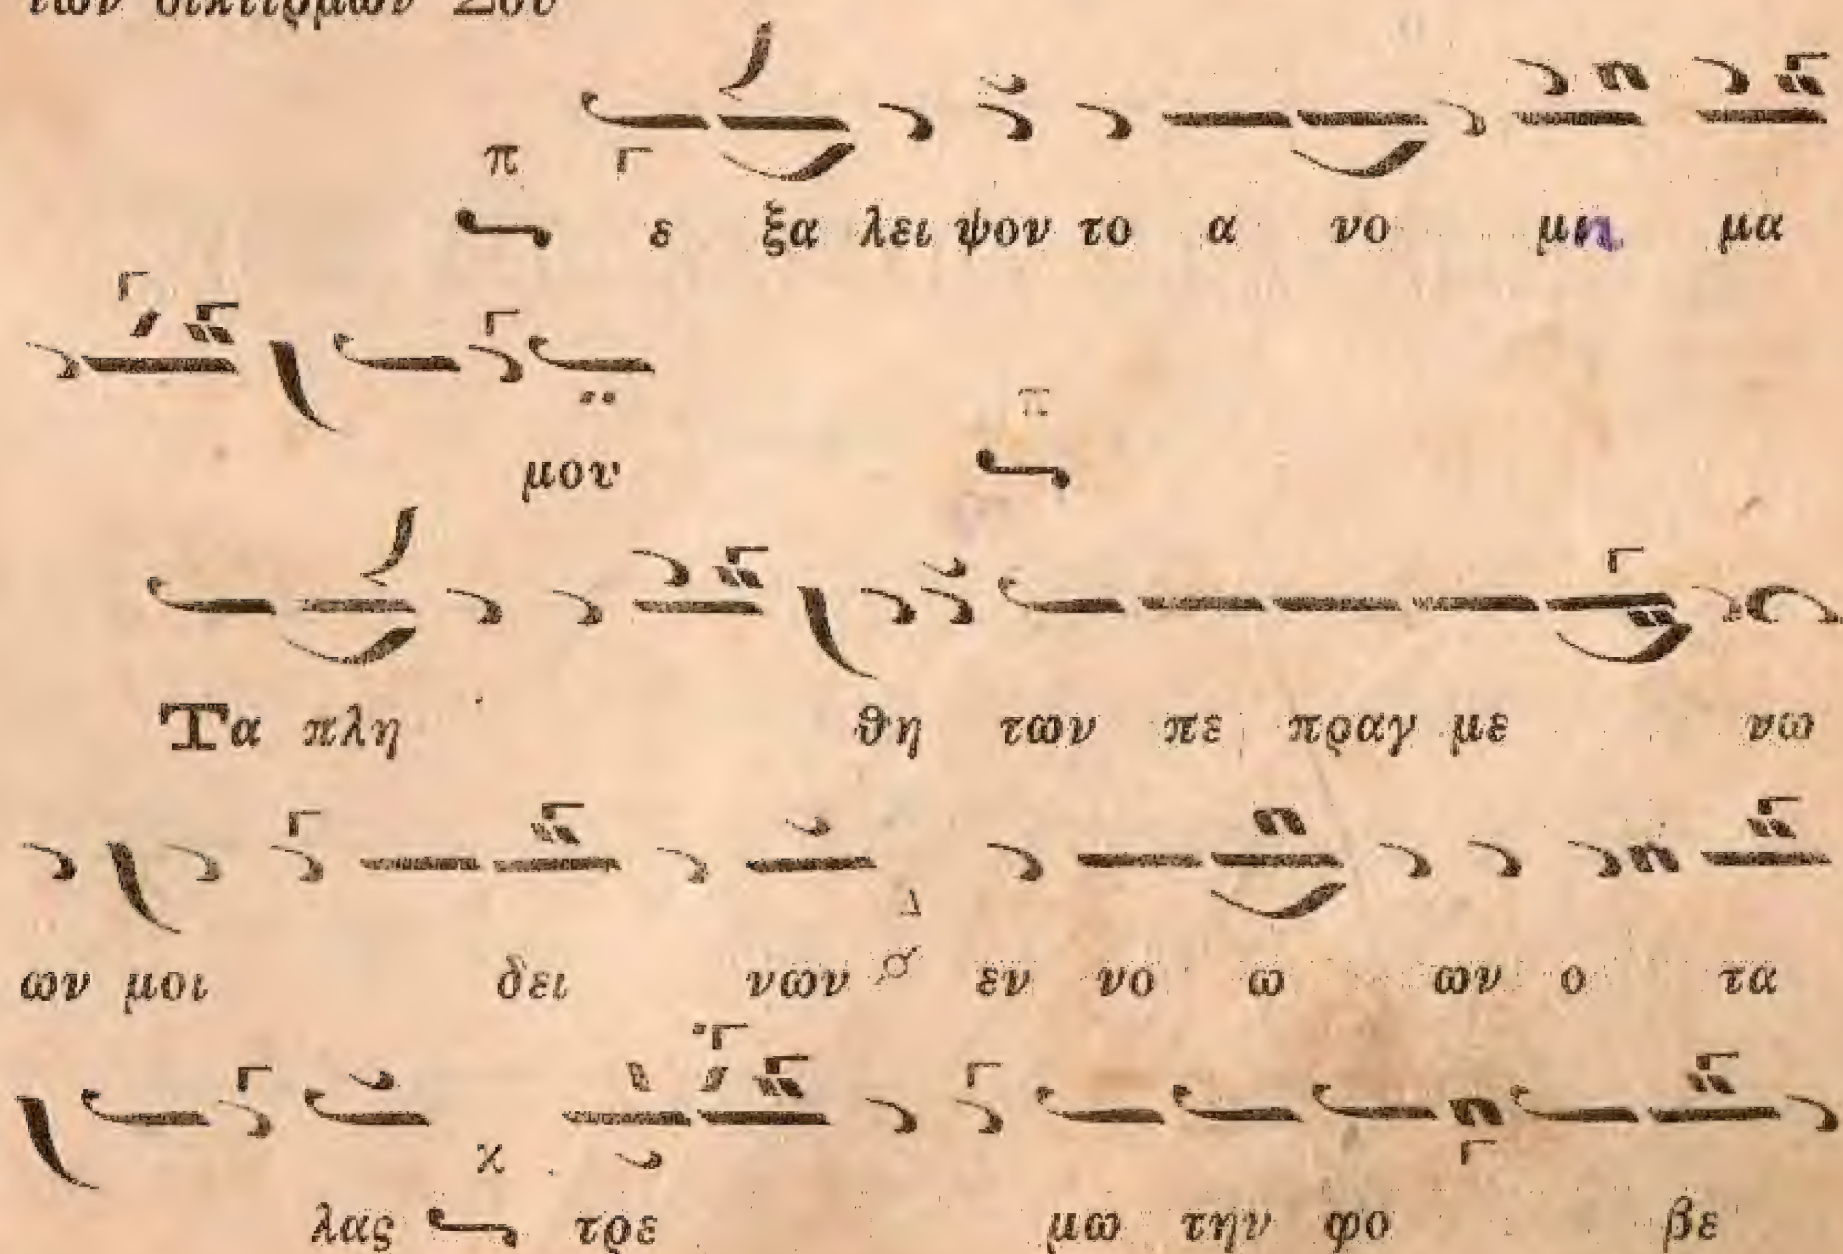 των οικτιρμών Σου
π
ε ξα λει ψον το α νο μη μα
μου
π
Τα πλη θη των πε πραγ με νω
ων μοι δει νων Δ εν νο ω ων ο τα
λας κ τρε μω την φο βε